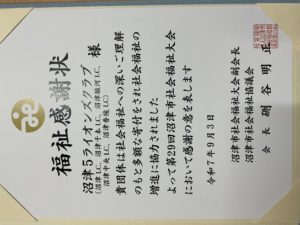 福祉感謝状
沼津5ライオンズクラブ 様
貴団体は社会福祉への深いご理解
のもと多額な寄付をされ社会福祉の
増進に協力されました
よって第29回沼津市社会福祉大会
において感謝の意を表します
令和7年9月3日
沼津市社会福祉大会副会長
沼津市社会福祉協議会
会長 磯谷明正